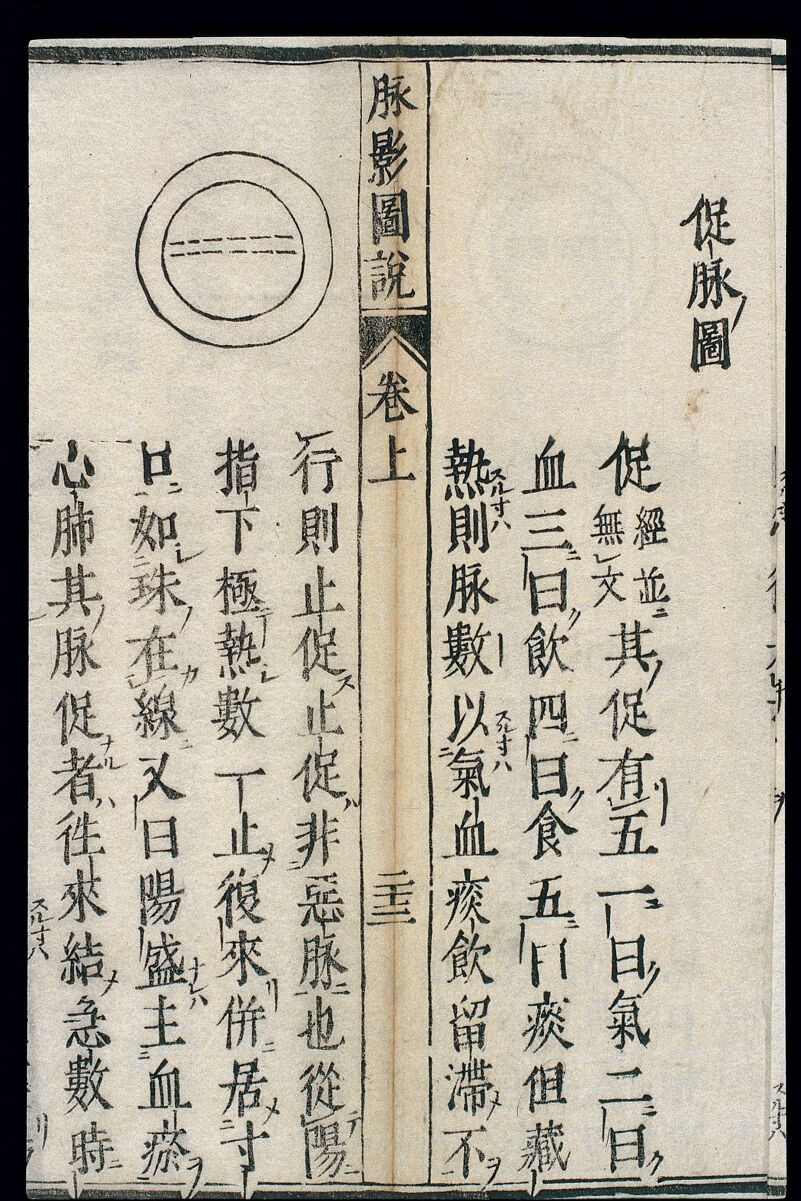 促脉圖
促經並無文其促有五一曰氣二曰
血三曰飲四曰食五曰痰但藏
熱則脉數以氣血痰飲留滯不
脉影圖說
卷上
二十三
行則止促止促非惡脉也從陽
指下極熱數一止復來併居寸
口如珠在線又曰陽盛主血瘀
心肺其脉促者徃來結急數時